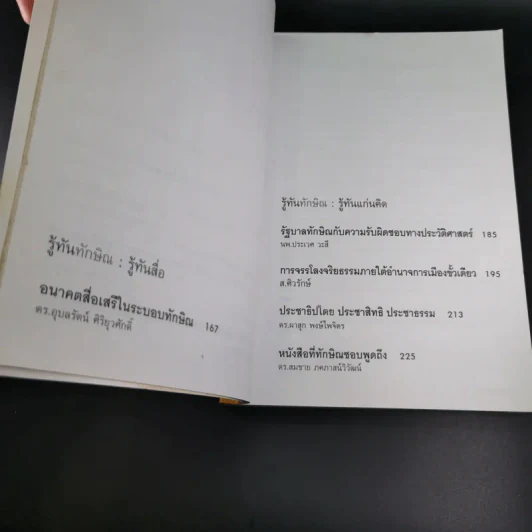 รู้ทันทักษิณ : รู้ทันสื่อ
อนาคตสื่อเสรีในระบอบทักษิณ 167
ดร.อุบลรัตน์ ศิริยุวศักดิ์
รู้ทันทักษิณ : รู้ทันแก่นคิด
รัฐบาลทักษิณกับความรับผิดชอบทางประวัติศาสตร์ 185
นพ.ประเวศ วะสี
การจรรโลงจริยธรรมภายใต้อำนาจการเมืองขั้วเดียว 195
ส.ศิวรักษ์
ประชาธิปไตย ประชาสิทธิ ประชาธรรม 213
ดร.ผาสุก พงษ์ไพจิตร
หนังสือที่ทักษิณชอบพูดถึง 225
ดร.สมชาย ภคภาสน์วิวัฒน์